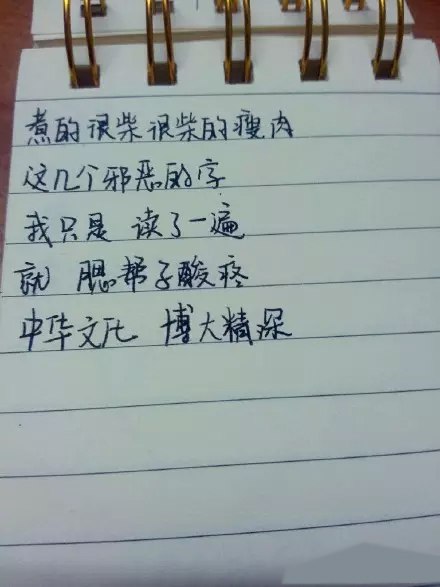 煮的很柴很柴的瘦肉
这几个邪恶的字
我只是 读了一遍
就 腮帮子酸疼
中华文化 博大精深